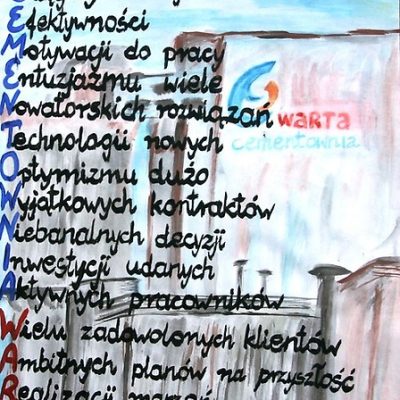 E Efektywności
M Motywacji do pracy
E Entuzjazmu wiele
N Nowatorskich rozwiązań
WARTA
T Technologii nowych
cementownia
O Optymizmu dużo
W Wyjątkowych kontraktów
N Niebanalnych decyzji
I Inwestycji udanych
A Aktywnych pracowników
W Wielu zadowolonych klientów
A Ambitnych planów na przyszłość
R Realizacji